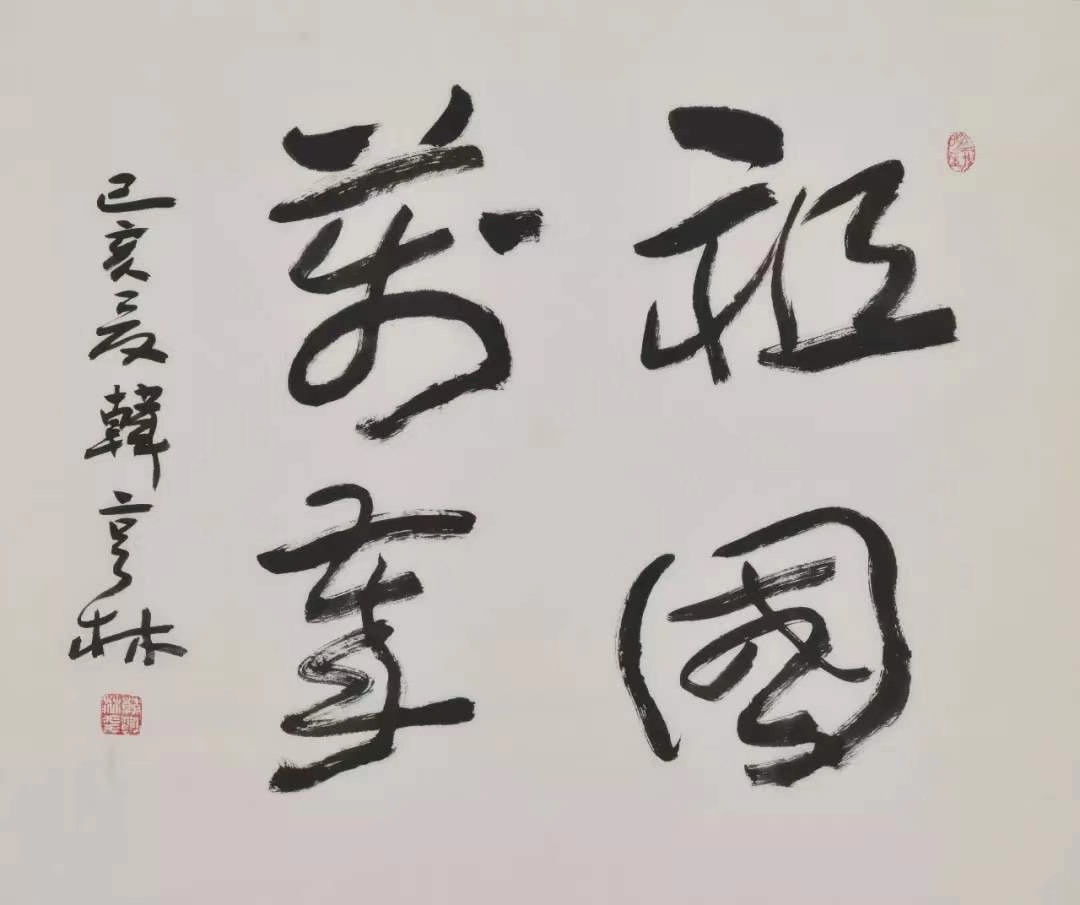 祖國
萬
己亥夏韓亨林